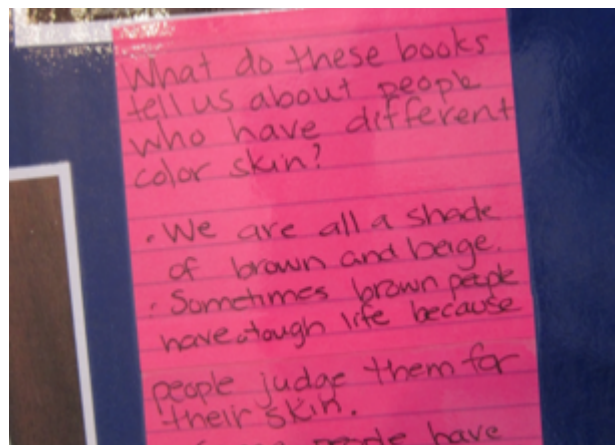 What do these books
tell us about people
who have different
color skin?
. We are all a shade
of brown and beige.
. Sometimes brown people
have a tough life because
people judge them for
their skin.
people have